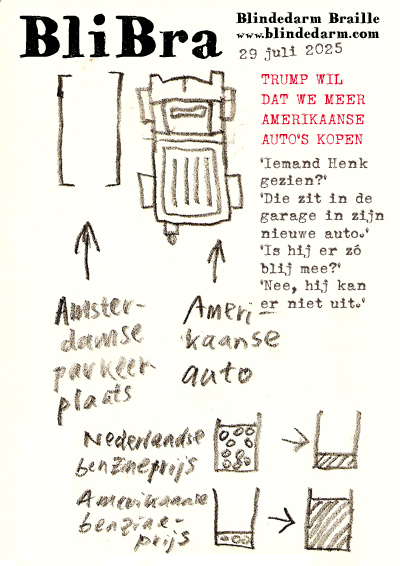 BliBra
Blindedarm Braille
www.blindedarm.com
29 juli 2025
TRUMP WIL
DAT WE MEER
AMERIKAANSE
AUTO'S KOPEN
'Iemand Henk
gezien?'
'Die zit in de
garage in zijn
nieuwe auto.'
'Is hij er zó
blij mee?'
'Nee, hij kan
er niet uit.'
Amster-
damse
parkeer
plaats
Ameri-
kaanse
auto
Nederlandse
benzineprijs
Amerikaanse
benzine-
prijs